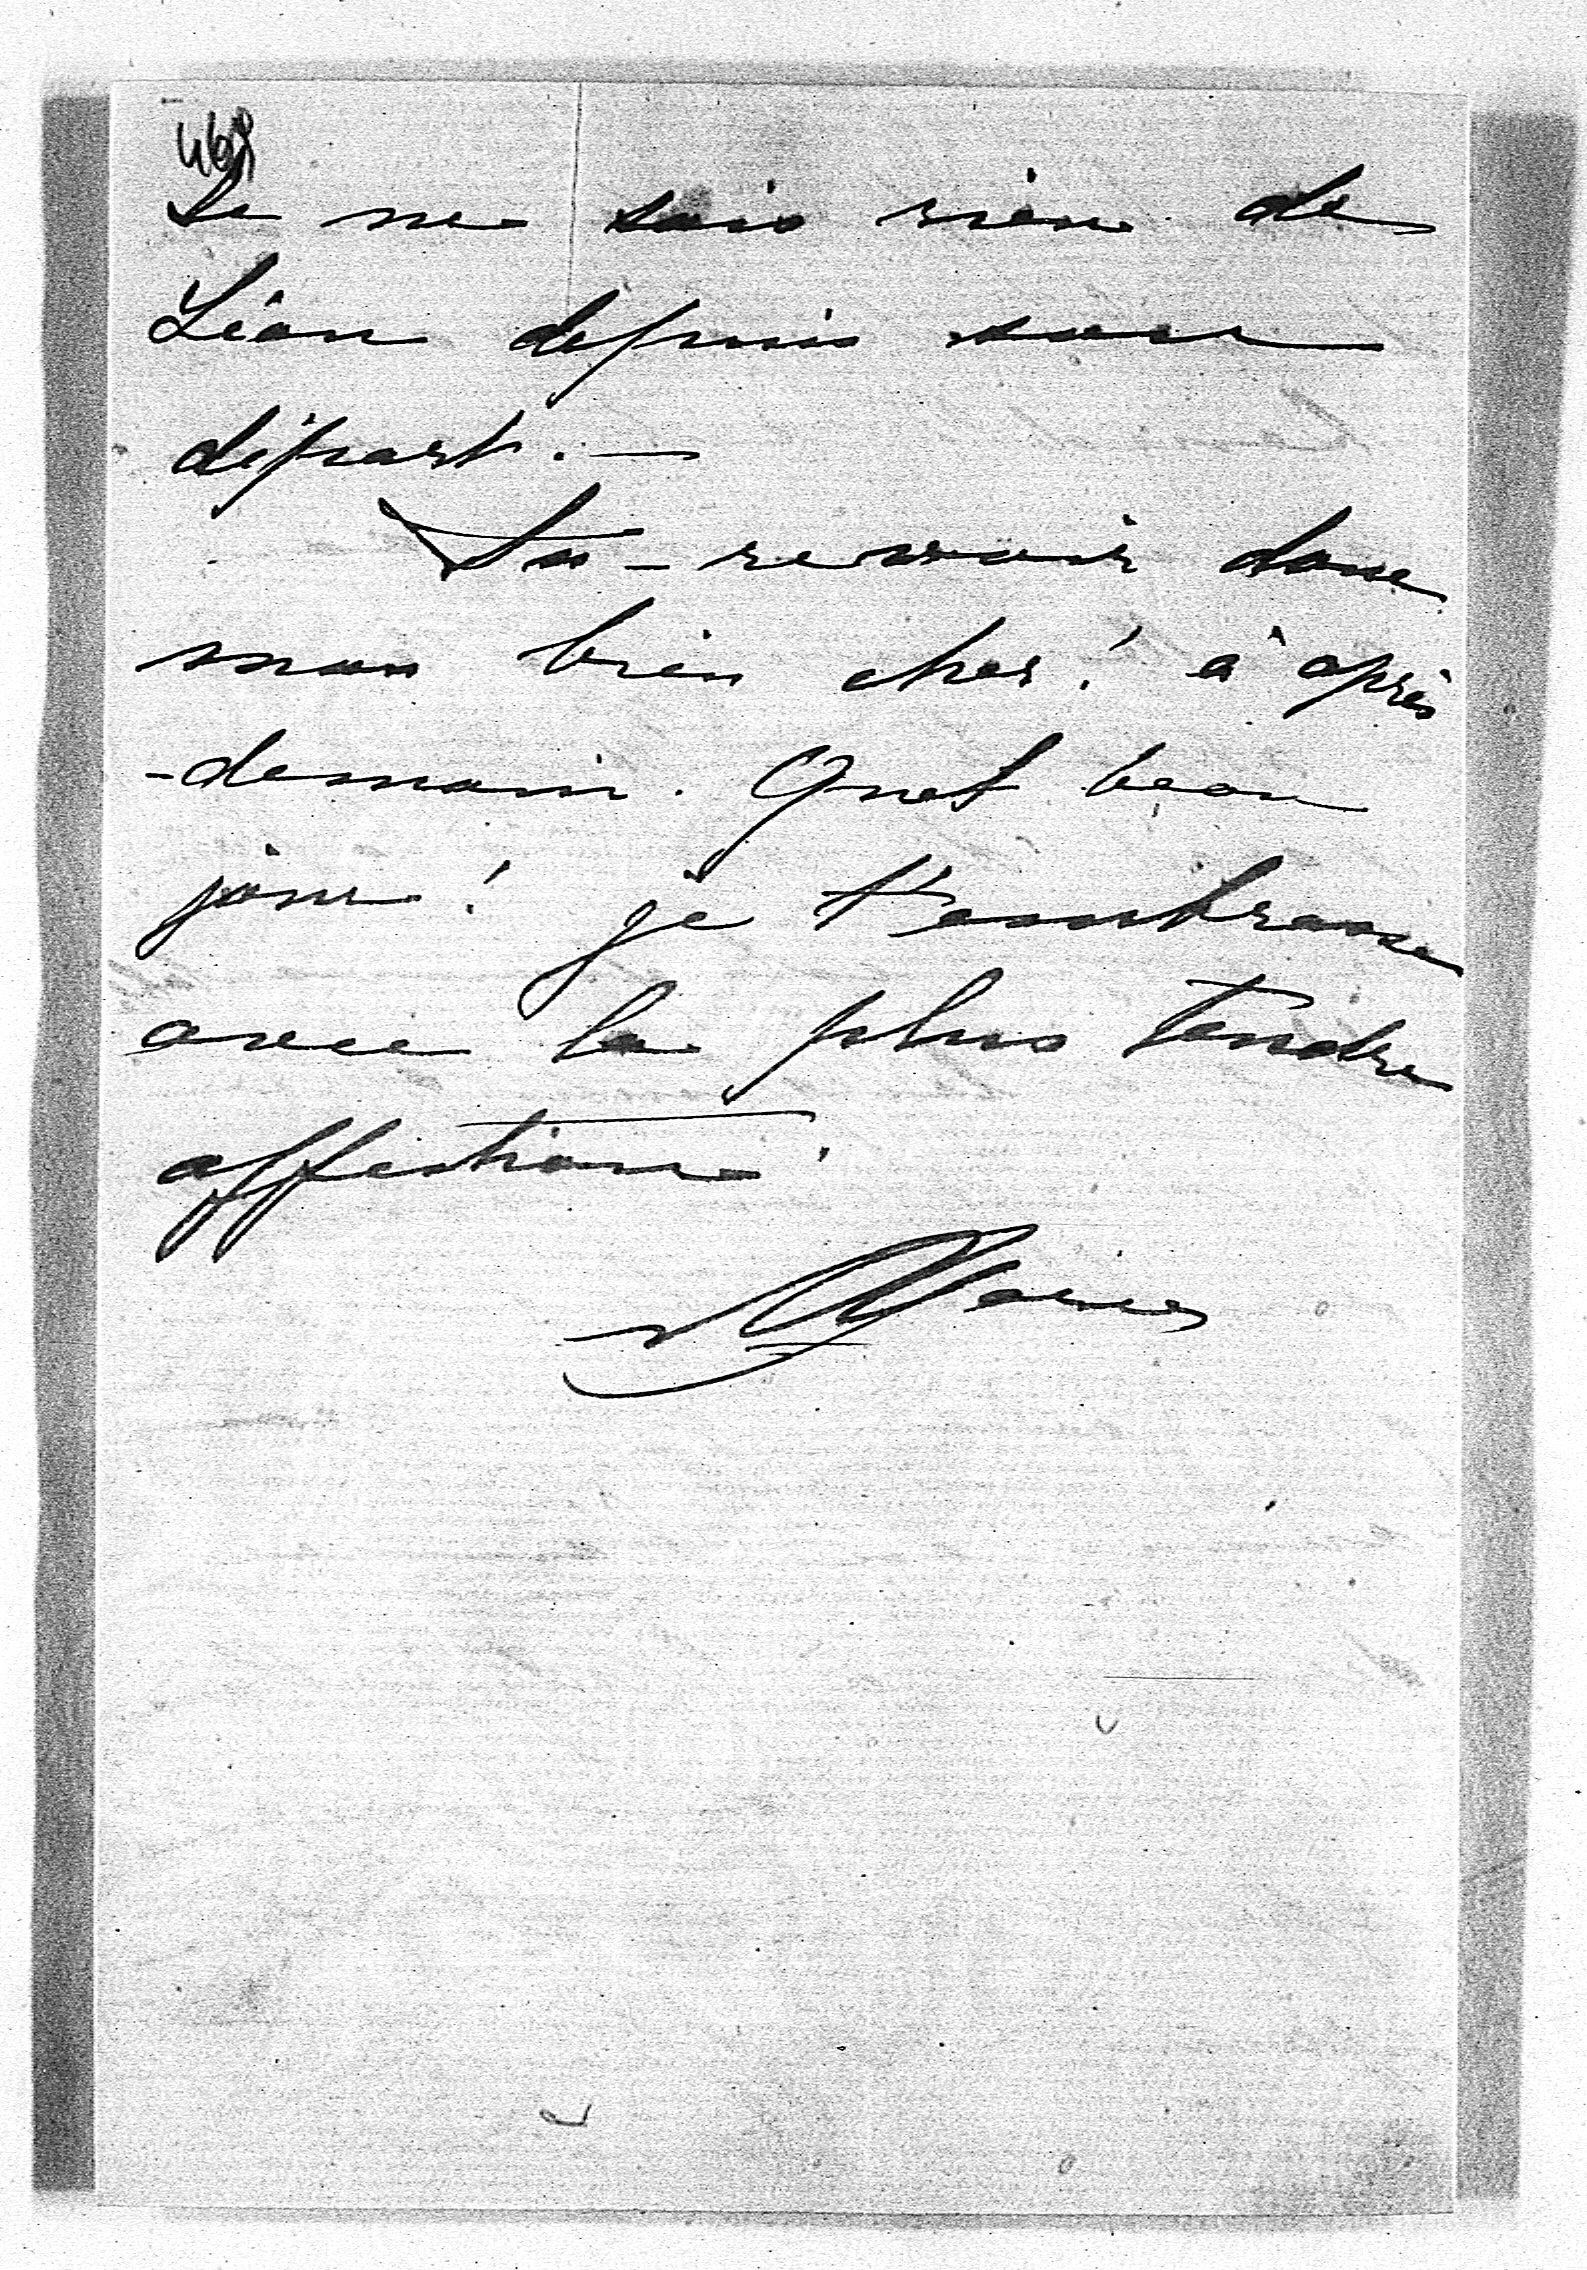 468
Je ne sais rien de
Léon depuis son
départ. —
Au-revoir donc
mon bien cher! à après
-demain. Quel beau
jour! je t'embrasse
avec la plus tendre
affection.
Marie